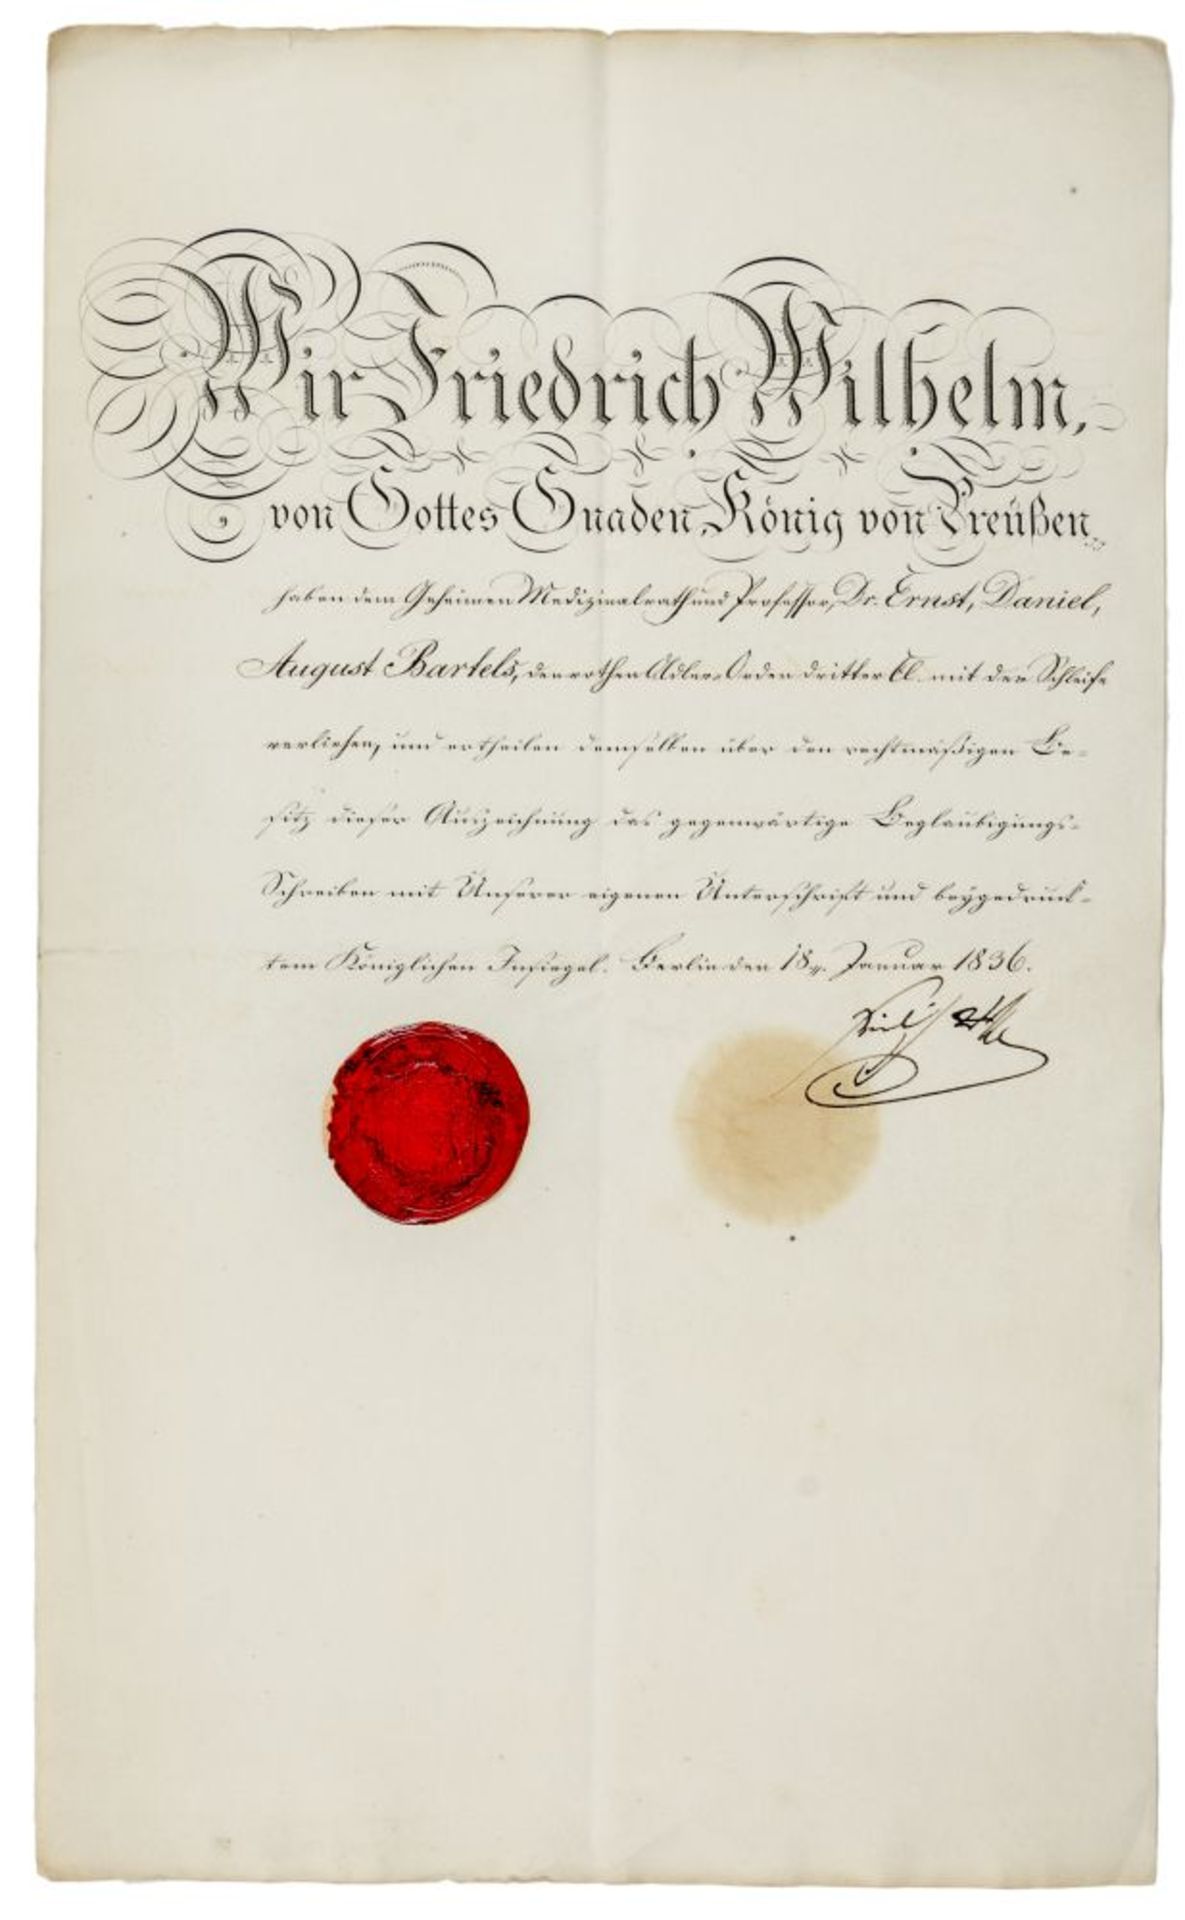 Wir Friedrich Wilhelm,
von Gottes Gnaden, König von Preußen
haben dem Geheimen Medizinalrath und Professor, Dr. Ernst, Daniel,
August Bartels, den rothen Adler-Orden dritter Cl. mit der Schleife
verliehen, und ertheilen demselben über den rechtmäßigen Be-
sitz dieser Auszeichnung das gegenwärtige Beglaubigungs-
Schreiben mit Unserer eigenen Unterschrift und beygedruck-
tem Königlichen Insiegel. Berlin den 18n. Januar 1836.